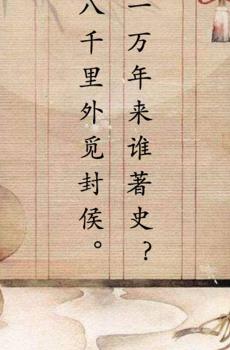 一万年来谁著史？
八千里外觅封侯。